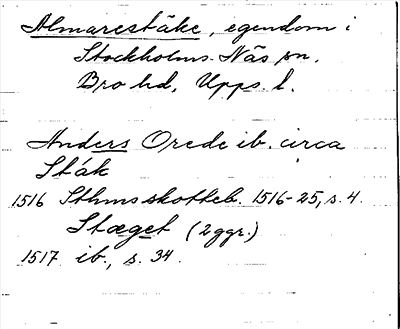 Almarestäke, egendom i
Stockholms-Näs sn.
Bro hd, Upps. l.
Anders Orede ib. circa
Stäk
1516 Sthms skotteb. 1516-25, s. 4.
Stæget (2 ggr.)
1517 ib., s. 34.